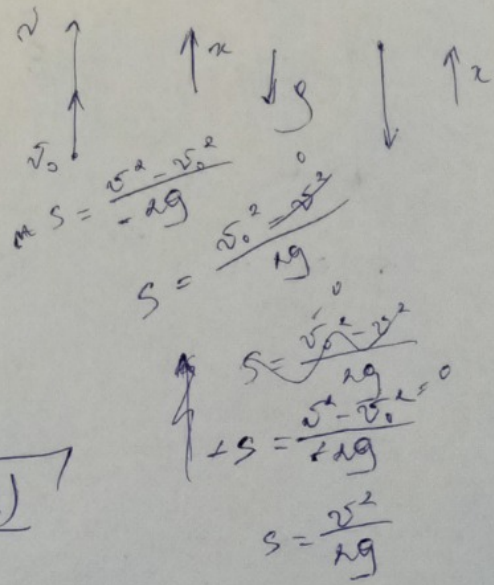 v x g x
v₀
S = (v² - v₀²) / -2g
S = (v₀² - v²) / 2g
0
S = (v₀² - v²) / 2g
0
+S = (v² - v₀²) / +2g = 0
S = v² / 2g